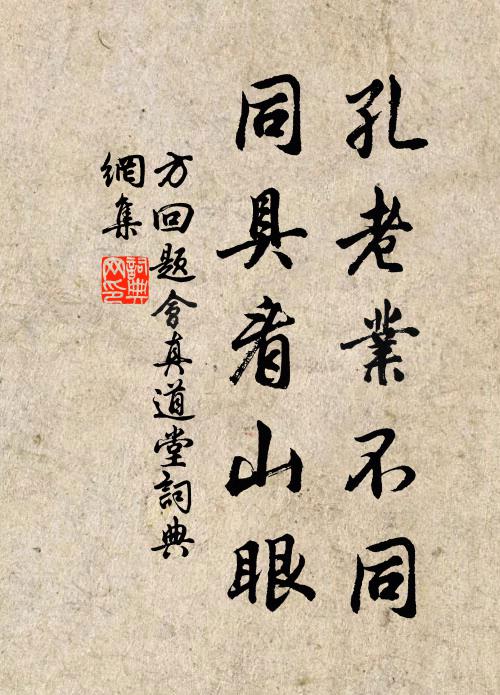 孔老業不同
同具看山眼
方回題會真道堂詞典
網集
詞典
网印